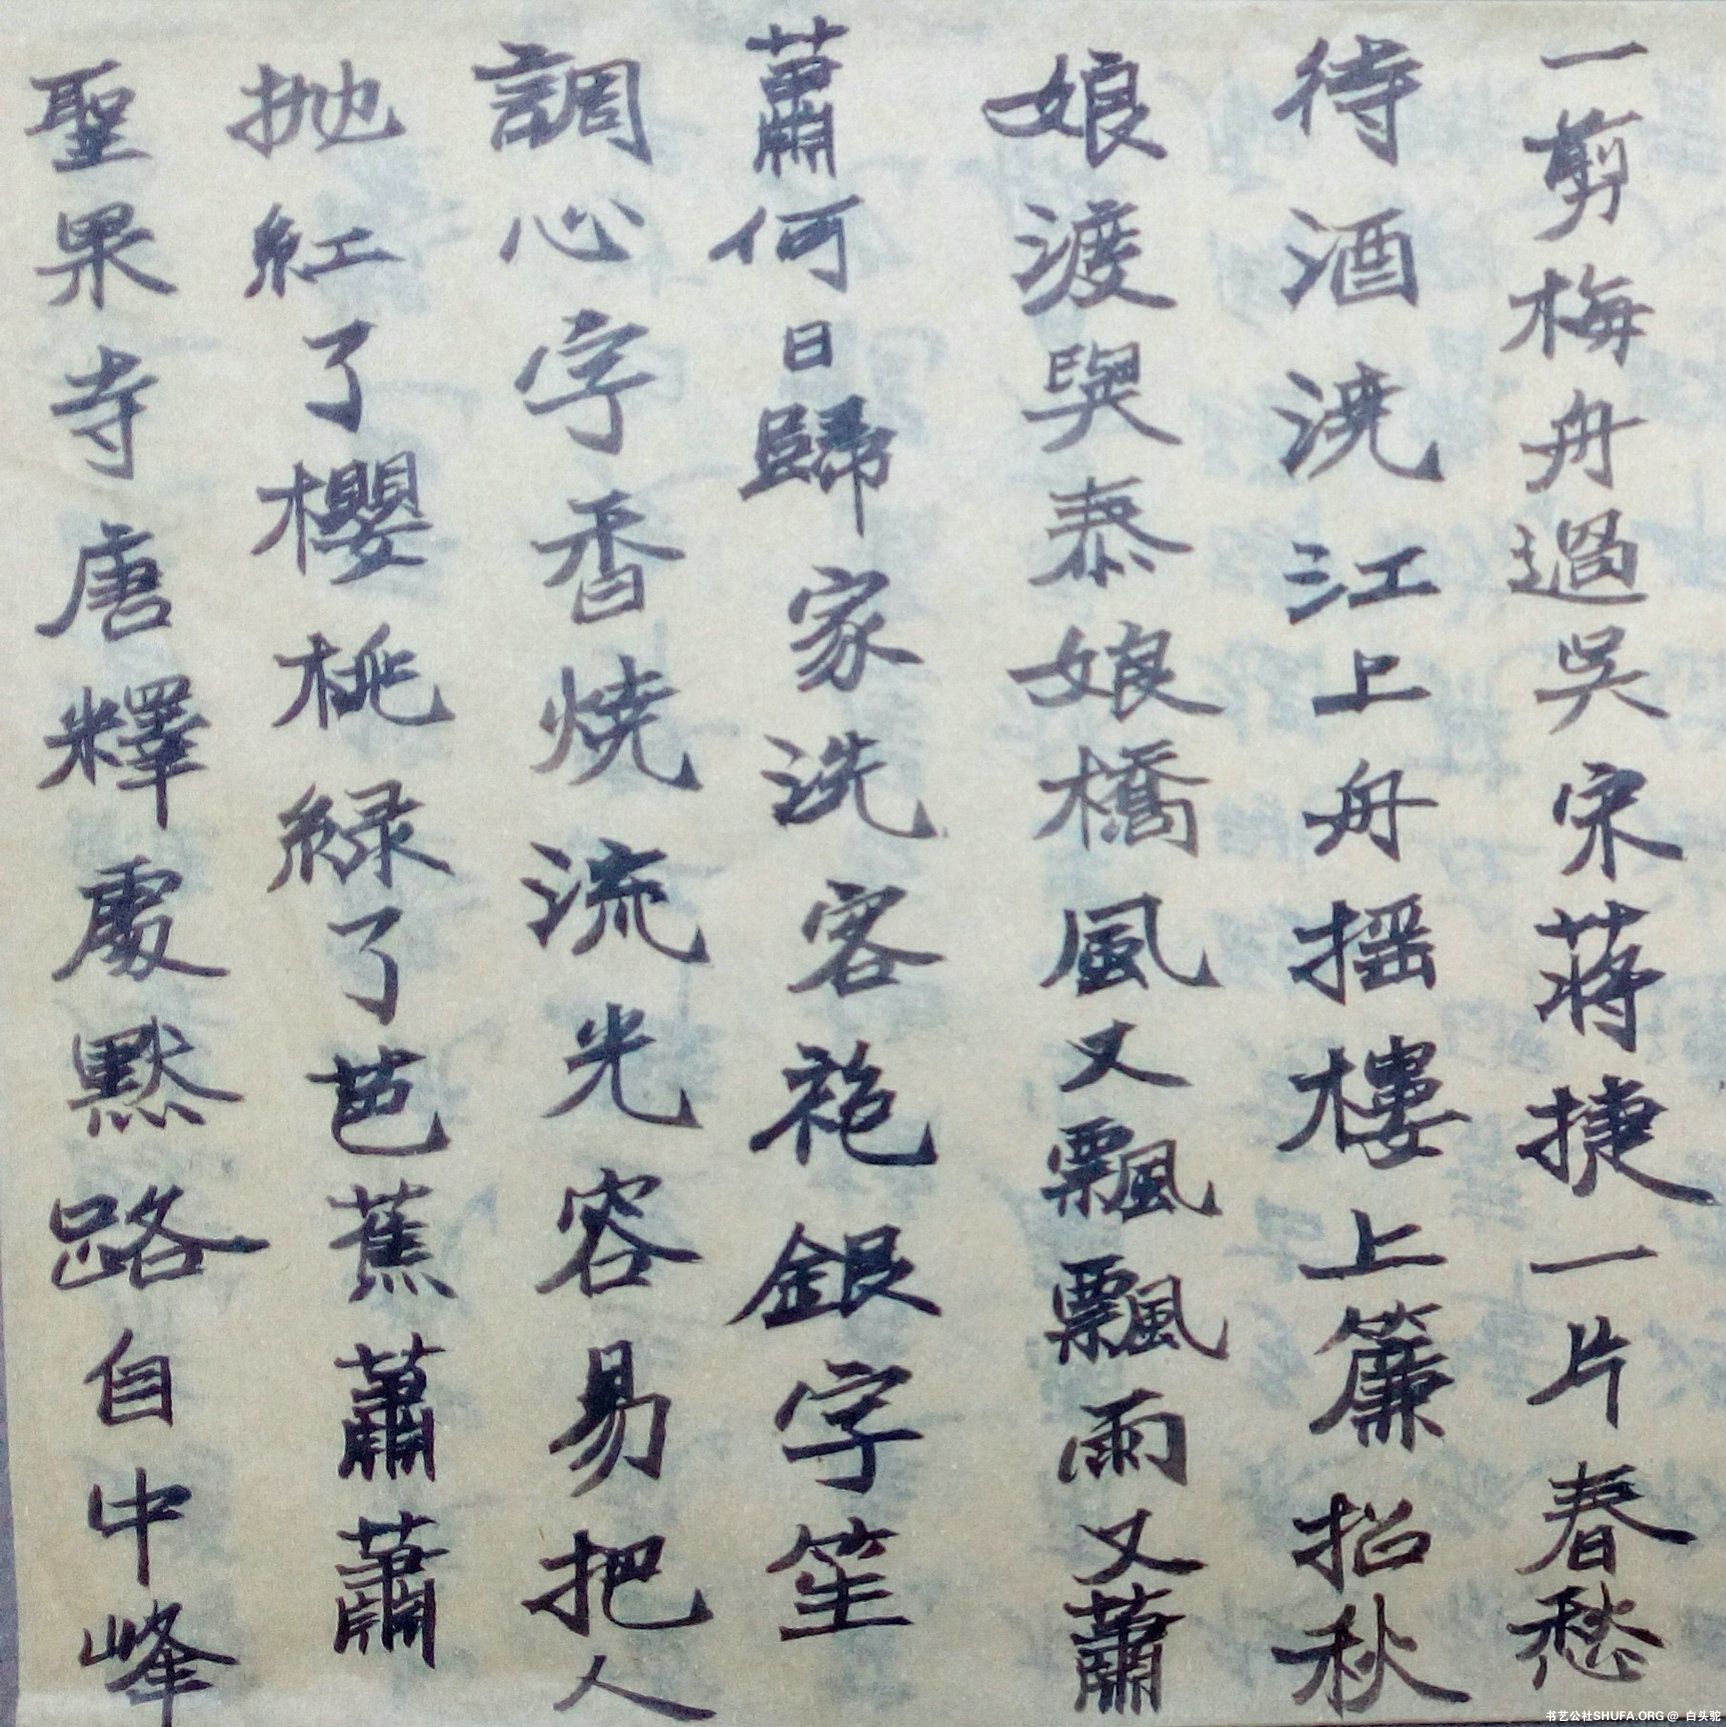 一剪梅舟過吳宋蔣捷一片春愁
待酒澆江上舟揺樓上簾招秋
娘渡與泰娘橋風又飄飄雨又蕭
蕭何日歸家洗客袍銀字笙
調心字香燒流光容易把人
拋紅了櫻桃緑了芭蕉蕭蕭
聖果寺唐釋處黙路自中峰
书艺公社SHUFA.ORG @ 白头驼